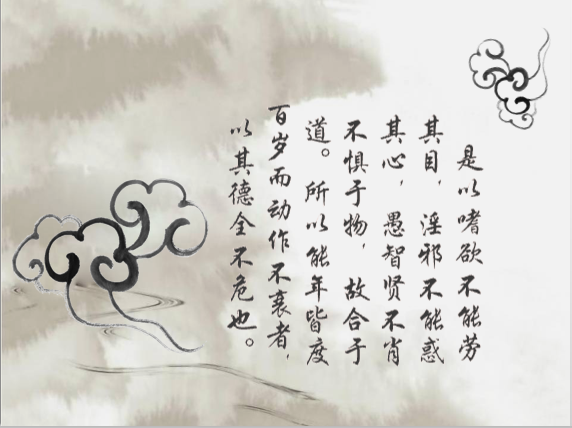 是以嗜欲不能劳
其目，淫邪不能惑
其心，愚智贤不肖
不惧于物，故合于
道。所以能年皆度
百岁而动作不衰者，
以其德全不危也。